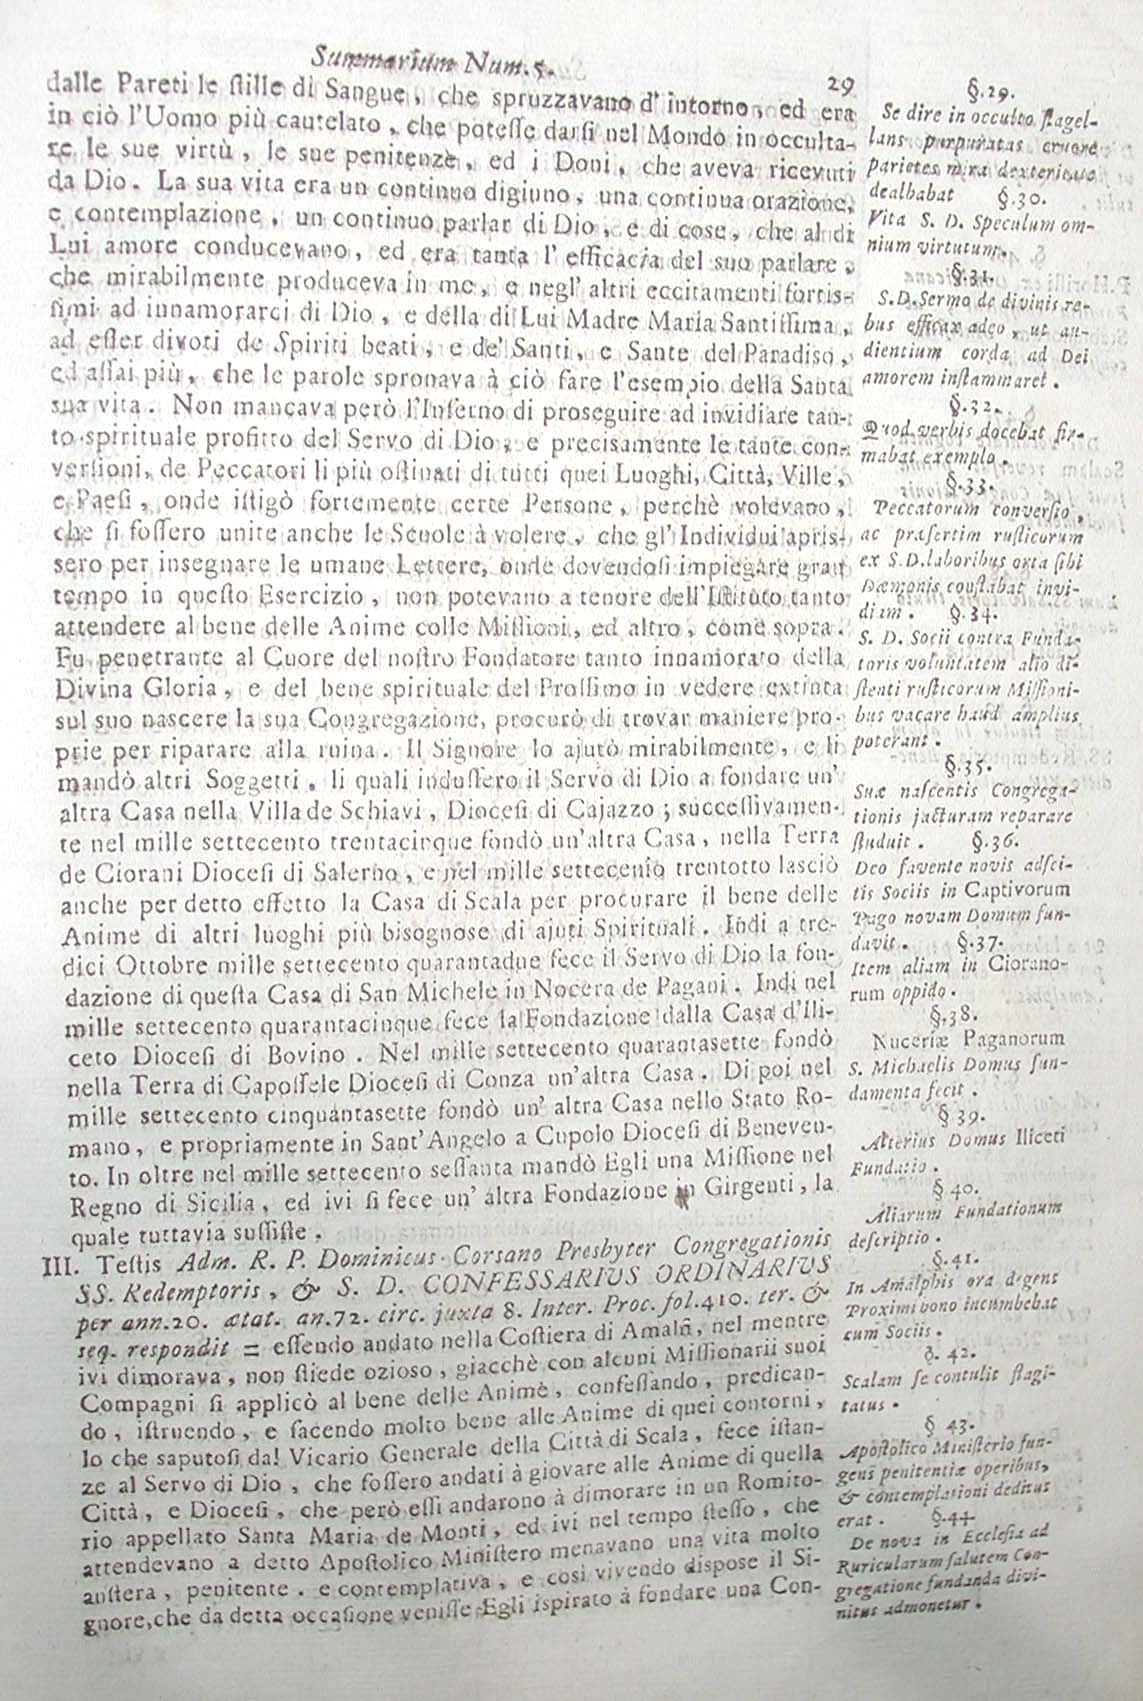 Summarium Num. 5.
29
dalle Pareti le ſtille di Sangue, che spruzzavano d' intorno, ed era
in ciò l'Uomo più cautelato, che poteſſe darſi nel Mondo in occulta-
re le sue virtù, le sue penitenze, ed i Doni, che aveva ricevuti
da Dio. La sua vita era un continuo digiuno, una continua orazione,
e contemplazione, un continuo parlar di Dio, e di cose, che al di
Lui amore conducevano, ed era tanta l' efficacia del suo parlare,
che mirabilmente produceva in me, e negl' altri eccitamenti fortis-
simi ad innamorarci di Dio, e della di Lui Madre Maria Santiſſima,
ad eſſer divoti de Spiriti beati, e de' Santi, e Sante del Paradiso,
ed aſſai più, che le parole spronava à ciò fare l'esempio della Santa
sua vita. Non mancava però l'Inferno di proseguire ad invidiare tan-
to spirituale profitto del Servo di Dio, e precisamente le tante con-
verſioni, de Peccatori li più oſtinati di tutti quei Luoghi, Città, Ville,
e Paeſi, onde iſtigò fortemente certe Persone, perchè volevano,
che ſi foſſero unite anche le Scuole à volere, che gl' Individui apris-
sero per insegnare le umane Lettere, onde dovendoſi impiegare gran
tempo in queſto Esercizio, non potevano a tenore dell'Iſtituto tanto
attendere al bene delle Anime colle Miſſioni, ed altro, come sopra.
Fu penetrante al Cuore del noſtro Fondatore tanto innamorato della
Divina Gloria, e del bene spirituale del Proſſimo in vedere extinta
sul suo nascere la sua Congregazione, procurò di trovar maniere pro-
prie per riparare alla ruina. Il Signore lo ajutò mirabilmente, e li
mandò altri Soggetti, li quali induſſero il Servo di Dio a fondare un'
altra Casa nella Villa de Schiavi, Dioceſi di Cajazzo; succeſſivamen-
te nel mille settecento trentacinque fondò un'altra Casa, nella Terra
de Ciorani Dioceſi di Salerno, e nel mille settecento trentotto lasciò
anche per detto effetto la Casa di Scala per procurare il bene delle
Anime di altri luoghi più bisognose di ajuti Spirituali. Indi a tre-
dici Ottobre mille settecento quarantadue fece il Servo di Dio la fon-
dazione di queſta Casa di San Michele in Nocera de Pagani. Indi nel
mille settecento quarantacinque fece la Fondazione dalla Casa d'Ili-
ceto Dioceſi di Bovino. Nel mille settecento quarantasette fondò
nella Terra di Capoſſele Dioceſi di Conza un'altra Casa. Di poi nel
mille settecento cinquantasette fondò un' altra Casa nello Stato Ro-
mano, e propriamente in Sant'Angelo a Cupolo Dioceſi di Beneven-
to. In oltre nel mille settecento seſſanta mandò Egli una Miſſione nel
Regno di Sicilia, ed ivi ſi fece un' altra Fondazione in Girgenti, la
quale tuttavia suſſiſte.
III. Teſtis Adm. R. P. Dominicus Corsano Presbyter Congregationis
SS. Redemptoris, & S. D. CONFESSARIUS ORDINARIUS
per ann. 20. ætat. an. 72. circ. juxta 8. Inter. Proc. fol. 410. ter. &
seq. respondit = eſſendo andato nella Coſtiera di Amalfi, nel mentre
ivi dimorava, non ſtiede ozioso, giacchè con alcuni Miſſionarii suoi
Compagni ſi applicò al bene delle Anime, confeſſando, predican-
do, iſtruendo, e facendo molto bene alle Anime di quei contorni,
lo che saputoſi dal Vicario Generale della Città di Scala, fece iſtan-
ze al Servo di Dio, che foſſero andati à giovare alle Anime di quella
Città, e Dioceſi, che però eſſi andarono à dimorare in un Romito-
rio appellato Santa Maria de Monti, ed ivi nel tempo ſteſſo, che
attendevano a detto Apoſtolico Miniſtero menavano una vita molto
auſtera, penitente, e contemplativa, e così vivendo dispose il Si-
gnore, che da detta occaſione veniſſe Egli ispirato à fondare una Con-
§. 29.
Se dire in occulto flagel-
lans purpuratas cruore
parietes mira dexteritate
dealbabat §. 30.
Vita S. D. Speculum om-
nium virtutum.
§. 31.
S. D. Sermo de divinis re-
bus efficax adeo, ut au-
dientium corda ad Dei
amorem inflammaret.
§. 32.
Quod verbis docebat fir-
mabat exemplo.
§. 33.
Peccatorum converſio,
ac præſertim ruſticorum
ex S. D. laboribus orta ſibi
Dæmonis conſtabat invi-
diam. §. 34.
S. D. Socii contra Funda-
toris voluntatem alio di-
ſtenti ruſticorum Miſſioni-
bus vacare haud amplius
poterant.
§. 35.
Suæ naſcentis Congrega-
tionis jacturam reparare
ſtuduit. §. 36.
Deo favente novis adſci-
tis Sociis in Captivorum
Pago novam Domum fun-
davit. §. 37.
Item aliam in Ciorano-
rum oppido.
§. 38.
Nuceriæ Paganorum
S. Michaelis Domus fun-
damenta fecit.
§ 39.
Alterius Domus Iliceti
Fundatio.
§ 40.
Aliarum Fundationum
deſcriptio.
§. 41.
In Amalphis ora degens
Proximi bono incumbebat
cum Sociis.
§. 42.
Scalam ſe contulit flagi-
tatus.
§ 43.
Apoſtolico Miniſterio fun-
gens penitentiæ operibus,
& contemplationi deditus
erat. §. 44.
De nova in Eccleſia ad
Ruricularum ſalutem Con-
gregatione fundanda divi-
nitus admonetur.